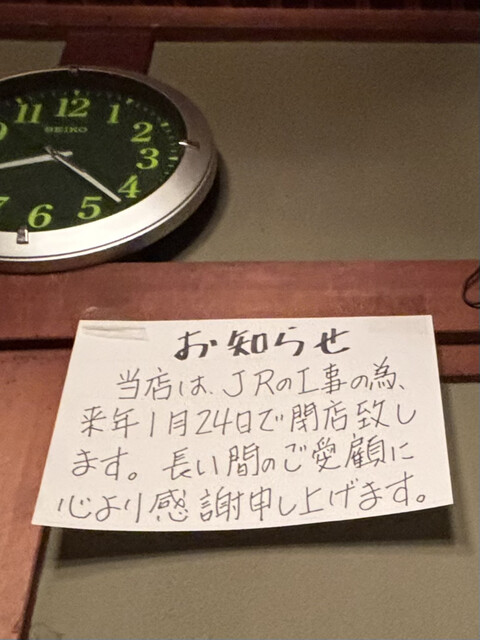 11 12 1
2
9
SEIKO
3
4
7 6 5
お知らせ
当店は、JRの工事の為、
来年1月24日で閉店致し
ます。長い間のご愛顧に
心より感謝申し上げます。